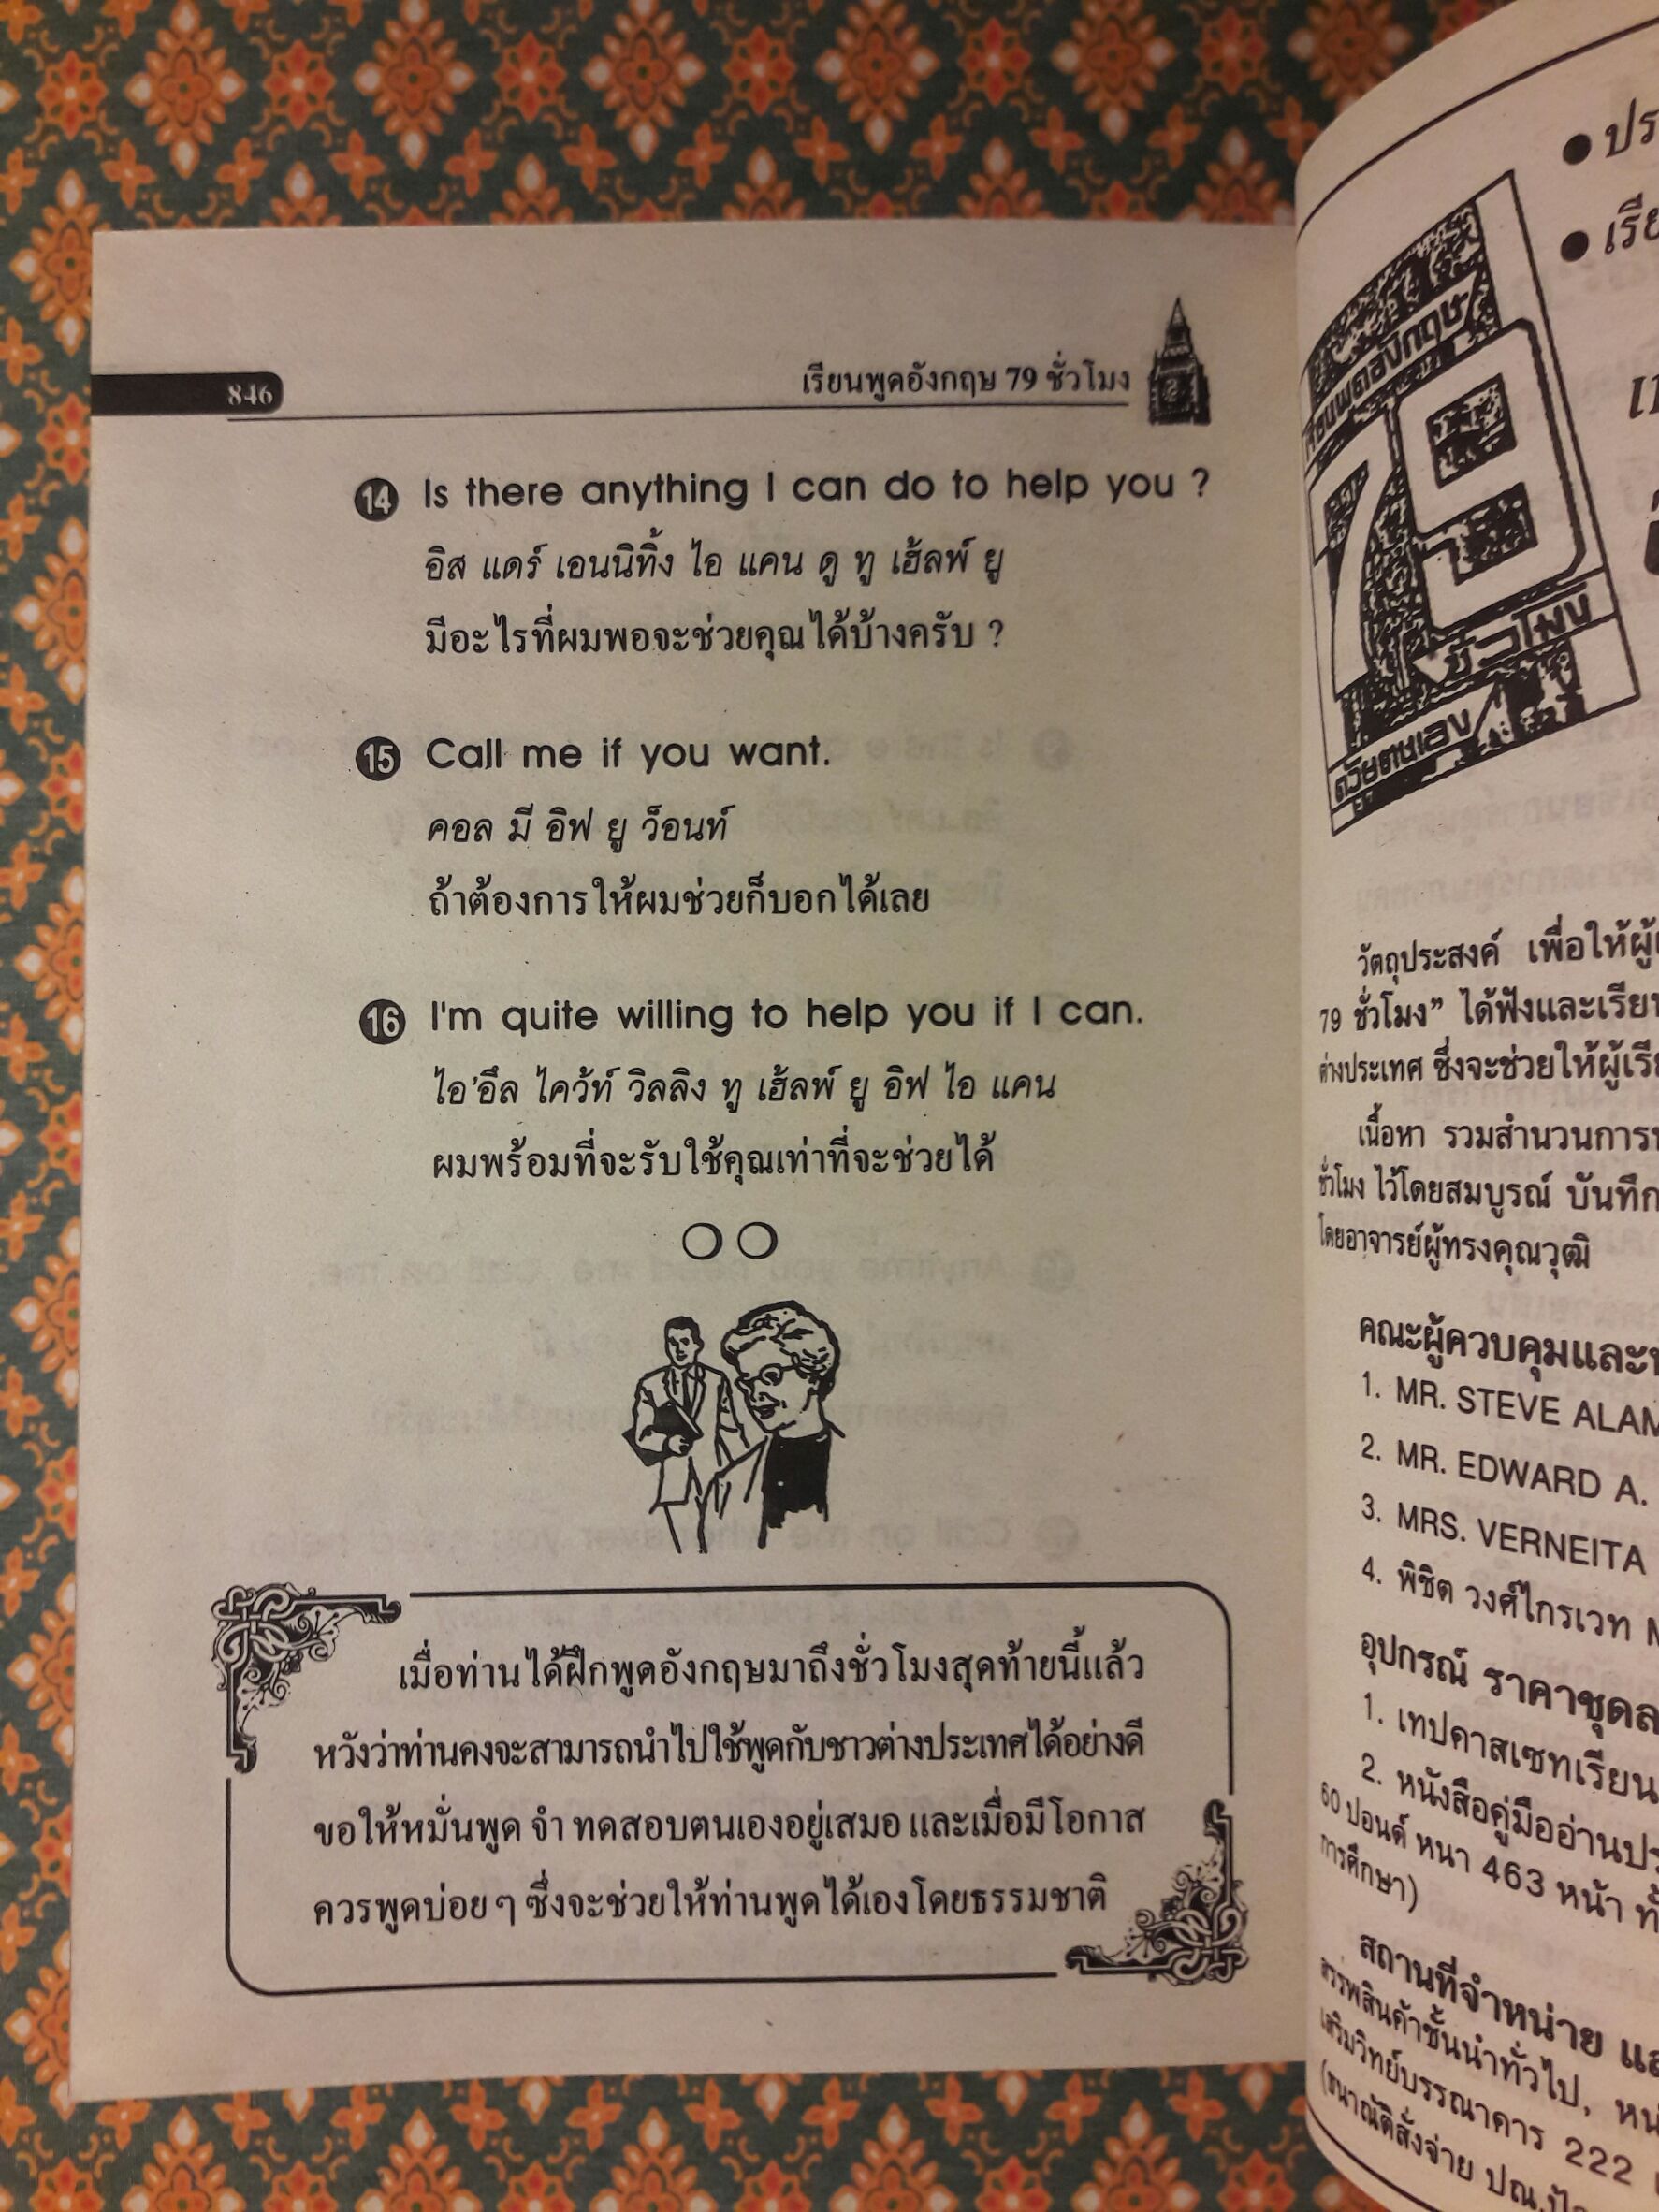 846
เรียนพูดอังกฤษ 79 ชั่วโมง
14 Is there anything I can do to help you ?
อิส แดร์ เอนนิทิ้ง ไอ แคน ดู ทู เฮ้ลพ์ ยู
มีอะไรที่ผมพอจะช่วยคุณได้บ้างครับ ?
15 Call me if you want.
คอล มี อิฟ ยู ว็อนท์
ถ้าต้องการให้ผมช่วยก็บอกได้เลย
16 I'm quite willing to help you if I can.
ไอ'อึล ไคว้ท์ วิลลิง ทู เฮ้ลพ์ ยู อิฟ ไอ แคน
ผมพร้อมที่จะรับใช้คุณเท่าที่จะช่วยได้
เมื่อท่านได้ฝึกพูดอังกฤษมาถึงชั่วโมงสุดท้ายนี้แล้ว
หวังว่าท่านคงจะสามารถนำไปใช้พูดกับชาวต่างประเทศได้อย่างดี
ขอให้หมั่นพูด จำ ทดสอบตนเองอยู่เสมอ และเมื่อมีโอกาส
ควรพูดบ่อยๆ ซึ่งจะช่วยให้ท่านพูดได้เองโดยธรรมชาติ
เรียนพูดอังกฤษ
79
ชั่วโมง
ด้วยตนเอง
วัตถุประสงค์ เพื่อให้
79 ชั่วโมง” ได้ฟังและเรียน
ต่างประเทศ ซึ่งจะช่วยให้
เนื้อหา รวมสำนวนการ
ชั่วโมง ไว้โดยสมบูรณ์ บันทึก
โดยอาจารย์ผู้ทรงคุณวุฒิ
คณะผู้ควบคุมและ
1. MR. STEVE
2. MR. EDWARD A.
3. MRS. VERNEITA
4. พิชิต วงศ์ไกรเวท
อุปกรณ์ ราคาชุด
1. เทปคาสเซทเรียน
2. หนังสือคู่มืออ่าน
60 ปอนด์ หนา 463 หน้า
การศึกษา)
สถานที่จำหน่าย
สรรพสินค้าชั้นนำทั่วไป,
เสริมวิทย์บรรณาคาร 222
(ธนาณัติสั่งจ่าย ปณ.